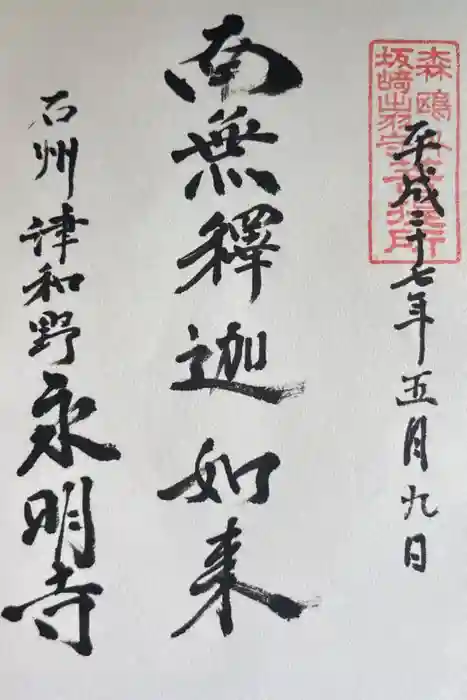 森鷗外
坂﨑出羽守菩提所
平成二十七年五月九日
南無釋迦如来
石州津和野永明寺